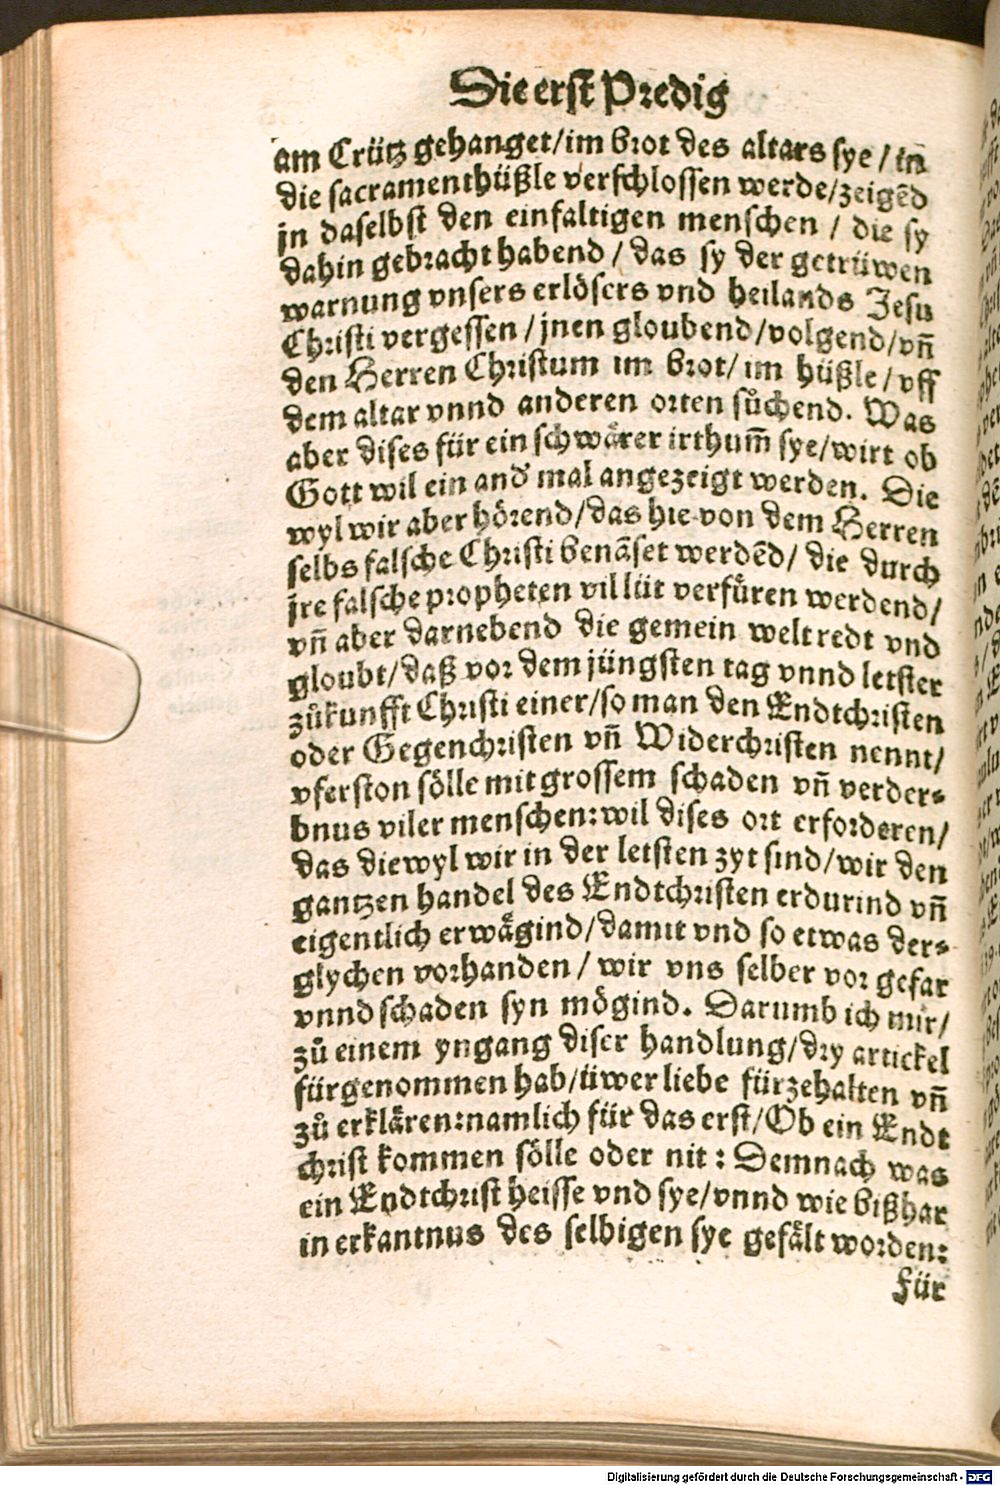 Die erst Predig
am Crütz gehanget/im brot des altars sye / in
die sacramenthüßle verschlossen werde/zeigẽd
jn daselbst den einfaltigen menschen / die sy
dahin gebracht habend / das sy der getrüwen
warnung vnsers erlösers vnd heilands Jesu
Christi vergessen / jnen gloubend/volgend/vñ
den Herren Christum im brot/ im hüßle / vff
dem altar vnnd anderen orten sůchend. Was
aber dises für ein schwärer irthum̃ sye/wirt ob
Gott wil ein and' mal angezeigt werden. Die
wyl wir aber hörend/das hie von dem Herren
selbs falsche Christi benãset werdẽd/ die durch
jre falsche propheten vil lüt verfüren werdend/
vñ aber darnebend die gemein welt redt vnd
gloubt/daß vor dem jüngsten tag vnnd letster
zůkunfft Christi einer/so man den Endtchristen
oder Gegenchristen vñ Widerchristen nennt/
vferston sölle mit grossem schaden vñ verder⸗
bnus viler menschen:wil dises ort erforderen/
das diewyl wir in der letsten zyt sind/wir den
gantzen handel des Endtchristen erdurind vñ
eigentlich erwägind/damit vnd so etwas der⸗
glychen vorhanden / wir vns selber vor gefar
vnnd schaden syn mögind. Darumb ich mir/
zů einem yngang diser handlung/dry artickel
fürgenommen hab/üwer liebe fürzehalten vñ
zů erklären:namlich für das erst/Ob ein Endt
christ kommen sölle oder nit : Demnach was
ein Endtchrist heisse vnd sye/vnnd wie bißhar
in erkantnus des selbigen sye gefält worden:
Für
Digitalisierung gefördert durch die Deutsche Forschungsgemeinschaft - DFG